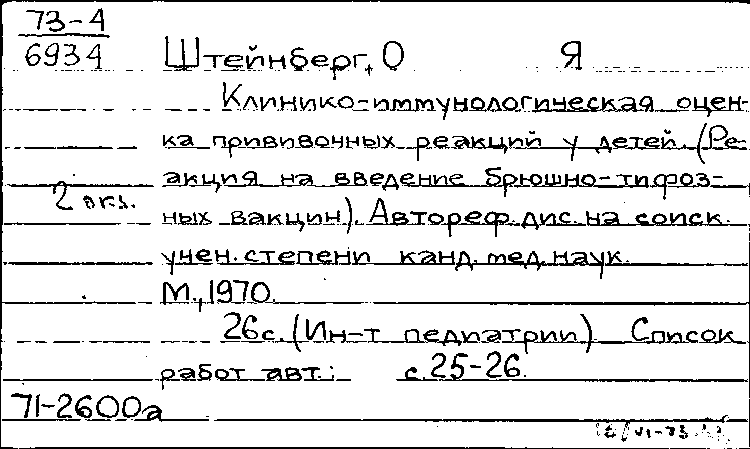 73-4
6934
Штейнберг, О Я
Клинико-иммунологическая оцен-
ка прививочных реакций у детей. (Ре-
акция на введение брюшно-тифоз-
2 экз.
ных вакцин). Автореф. дис. на соиск.
учен. степени канд. мед. наук.
М., 1970.
26с. (Ин-т педиатрии) Список
работ авт.: с. 25-26.
71-2600а